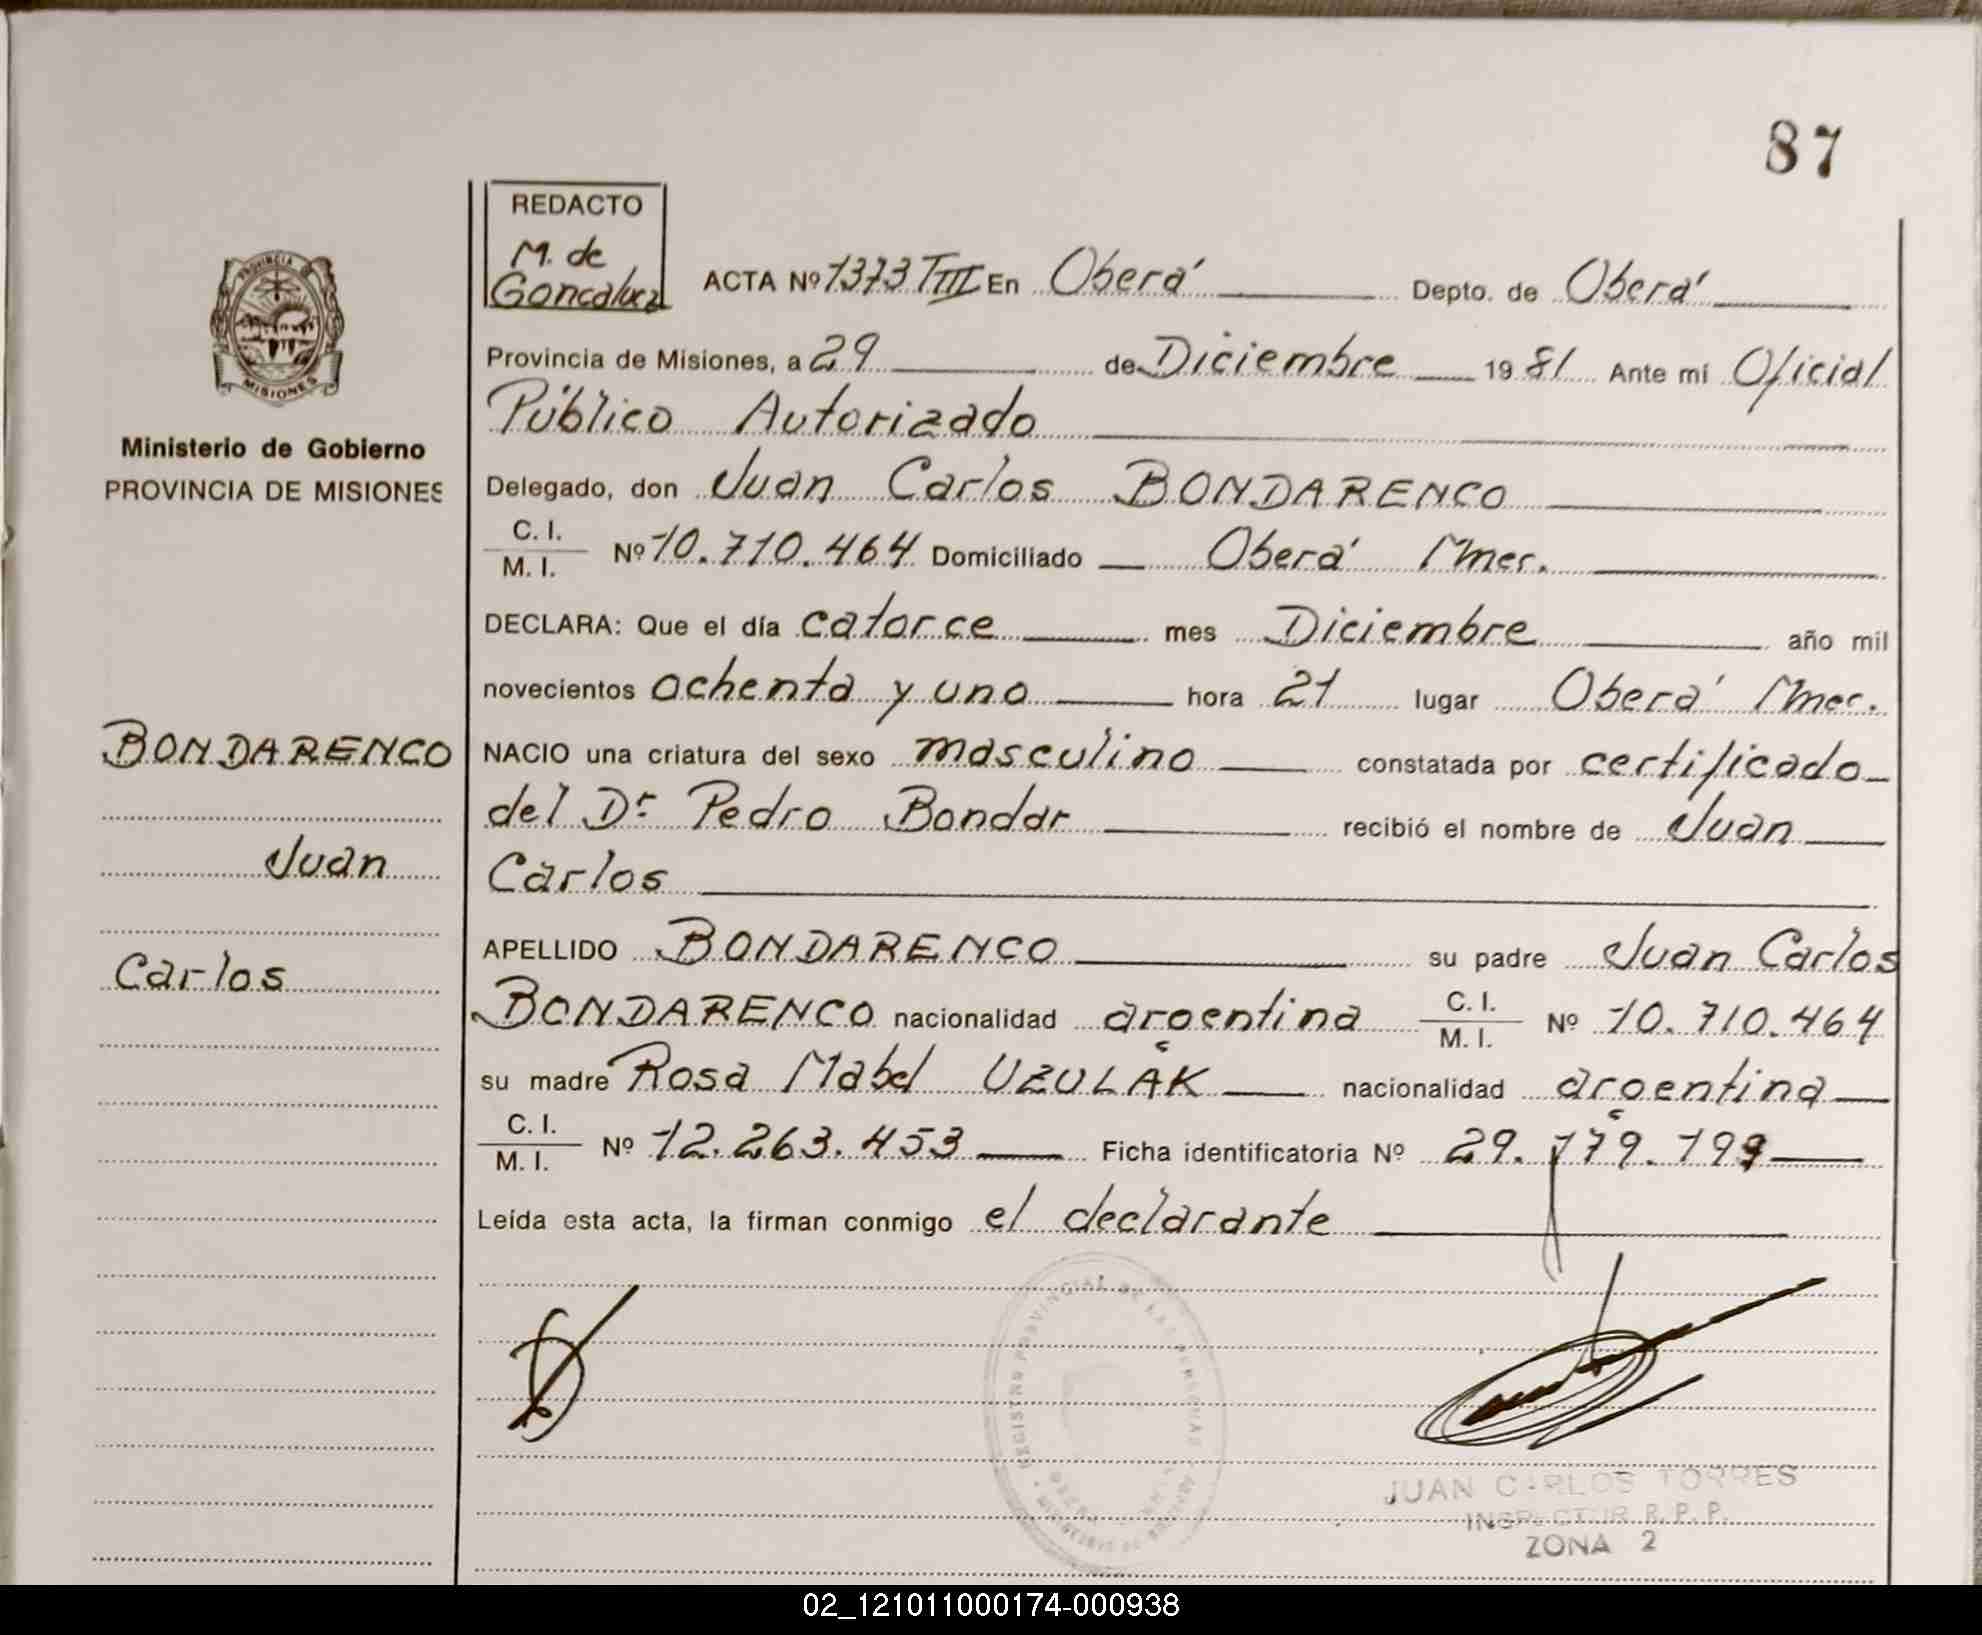 87
REDACTO
M. de
Goncalvez
ACTA Nº 1373 TIII En Oberá Depto. de Oberá
PROVINCIA DE
MISIONES
Provincia de Misiones, a 29 de Diciembre 1981 Ante mi Oficial
Público Autorizado
Ministerio de Gobierno
PROVINCIA DE MISIONES
Delegado, don Juan Carlos BONDARENCO
C. I.
M. I. Nº 10.710.464 Domiciliado Oberá Mnes.
DECLARA: Que el día catorce mes Diciembre año mil
novecientos ochenta y uno hora 21 lugar Oberá Mnes.
BONDARENCO
Juan
Carlos
NACIO una criatura del sexo masculino constatada por certificado
del Dr Pedro Bondar recibió el nombre de Juan
Carlos
APELLIDO BONDARENCO su padre Juan Carlos
BONDARENCO nacionalidad argentina C. I. M. I. Nº 10.710.464
su madre Rosa Mabel UZULAK nacionalidad argentina
C. I.
M. I. Nº 12.263.453 Ficha identificatoria Nº 29.179.199
Leída esta acta, la firman conmigo el declarante
REGISTRO PROVINCIAL DE LAS PERSONAS
JUAN CARLOS TORRES
INSPECTOR R. P. P.
ZONA 2
02_121011000174-000938